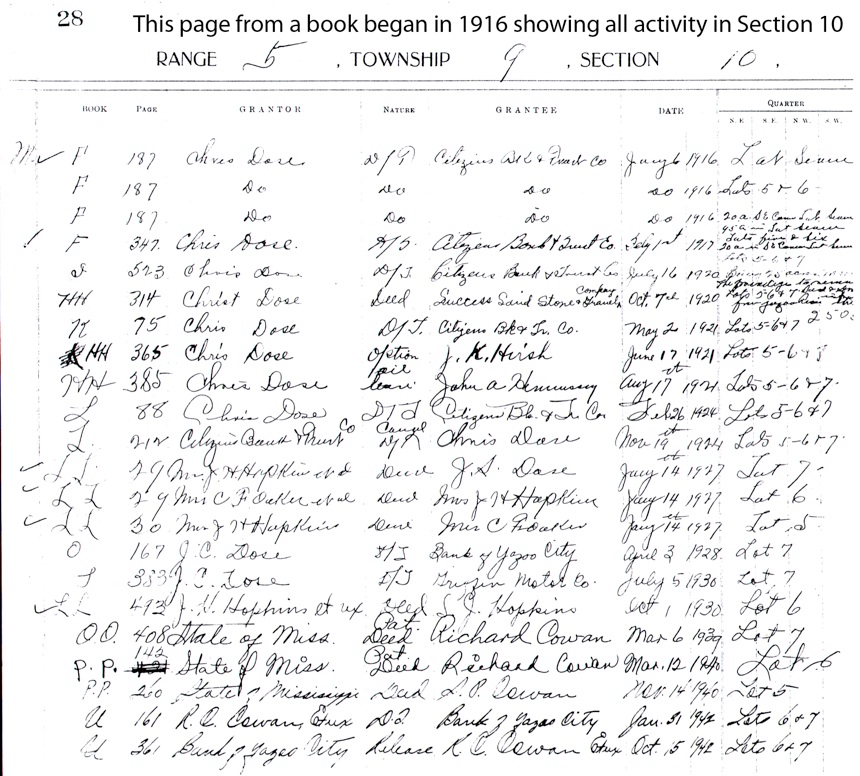 28 This page from a book began in 1916 showing all activity in Section 10
RANGE 5, TOWNSHIP 9, SECTION 10,
BOOK PAGE GRANTOR NATURE GRANTEE DATE QUARTER
N.E. S.E. N.W. S.W.
F 187 Chris Dose D/T Citizens Bk & Trust Co Jany 6 1916
F 187 Do Do Do Do 1916 Lots 5 & 6
F 187 Do Do Do Do 1916
F 347 Chris Dose. D/T. Citizens Bank & Trust Co. 1st 1917
523 Chris Dose D/T. Citizens Bank & Trust Co July 16 1920
HH 314 Christ Dose Deed Success Sand Stone & Company Oct. 7th 1920 Lots 5-6 & 7
75 Chris Dose D/T. Citizens Bk & Tr. Co. May 2 1921 Lots 5-6 & 7
HH 365 Chris Dose Option J. K. Hirsh June 17 1921 Lots 5-6 & 7
HH 385 Chris Dose oil lease John A Hennessy Aug 17th 1921 Lots 5-6 & 7.
L 88 Chris Dose D/T Citizens Bk. & Tr Co Feb 26 1924 Lots 5-6 & 7
L. 212 Citizens Bank & Trust Co Cancel D/T Chris Dose Nov 19th 1924 Lots 5-6 & 7.
LL 29 Mrs J H Hopkins et al Deed J. S. Dose Jany 14th 1927 Lot 7
LL 29 Mrs C F et al Deed Mrs J H Hopkins Jany 14 1927 Lot 6
LL 30 Mrs J H Hopkins Deed Mrs C F Jany 14th 1927 Lot 5
O 167 J. C. Dose D/T Bank of Yazoo City April 3 1928. Lot 7
383 J. C. Dose D/T Motor Co. July 5 1930 Lot 7
LL 492 J. H. Hopkins et ux Deed S J Hopkins Oct 1 1930 Lot 6
OO. 408 State of Miss. Pat Deed Richard Cowan Mar 6 1939 Lot 7
P.P. 142 State of Miss. Pat Deed Richard Cowan Mar. 12 1940. Lot 6
P.P. 260 State of Mississippi Deed Cowan Nov. 14 1940 Lot 5
U 161 R. C. Cowan, Et ux D.T. Bank of Yazoo City Jan. 31 1942 Lots 6 & 7
U 361 Bank of Yazoo City Release R. C. Cowan Et ux Oct. 15 1942 Lots 6 & 7